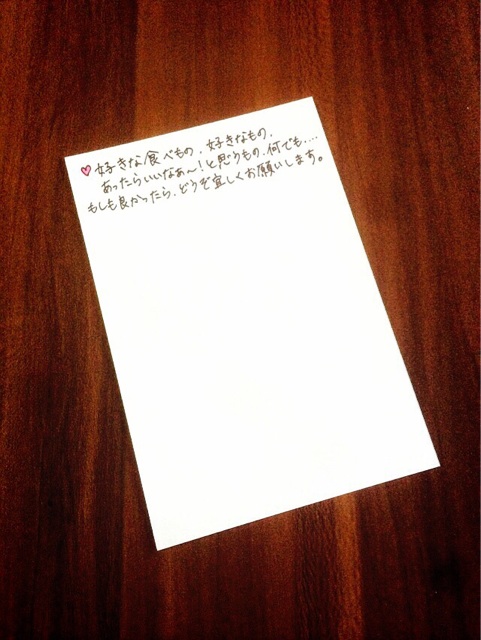 ♥好きな食べもの、好きなもの、
あったらいいなぁ〜!と思うもの、何でも....
もしも良かったら、どうぞ宜しくお願いします。